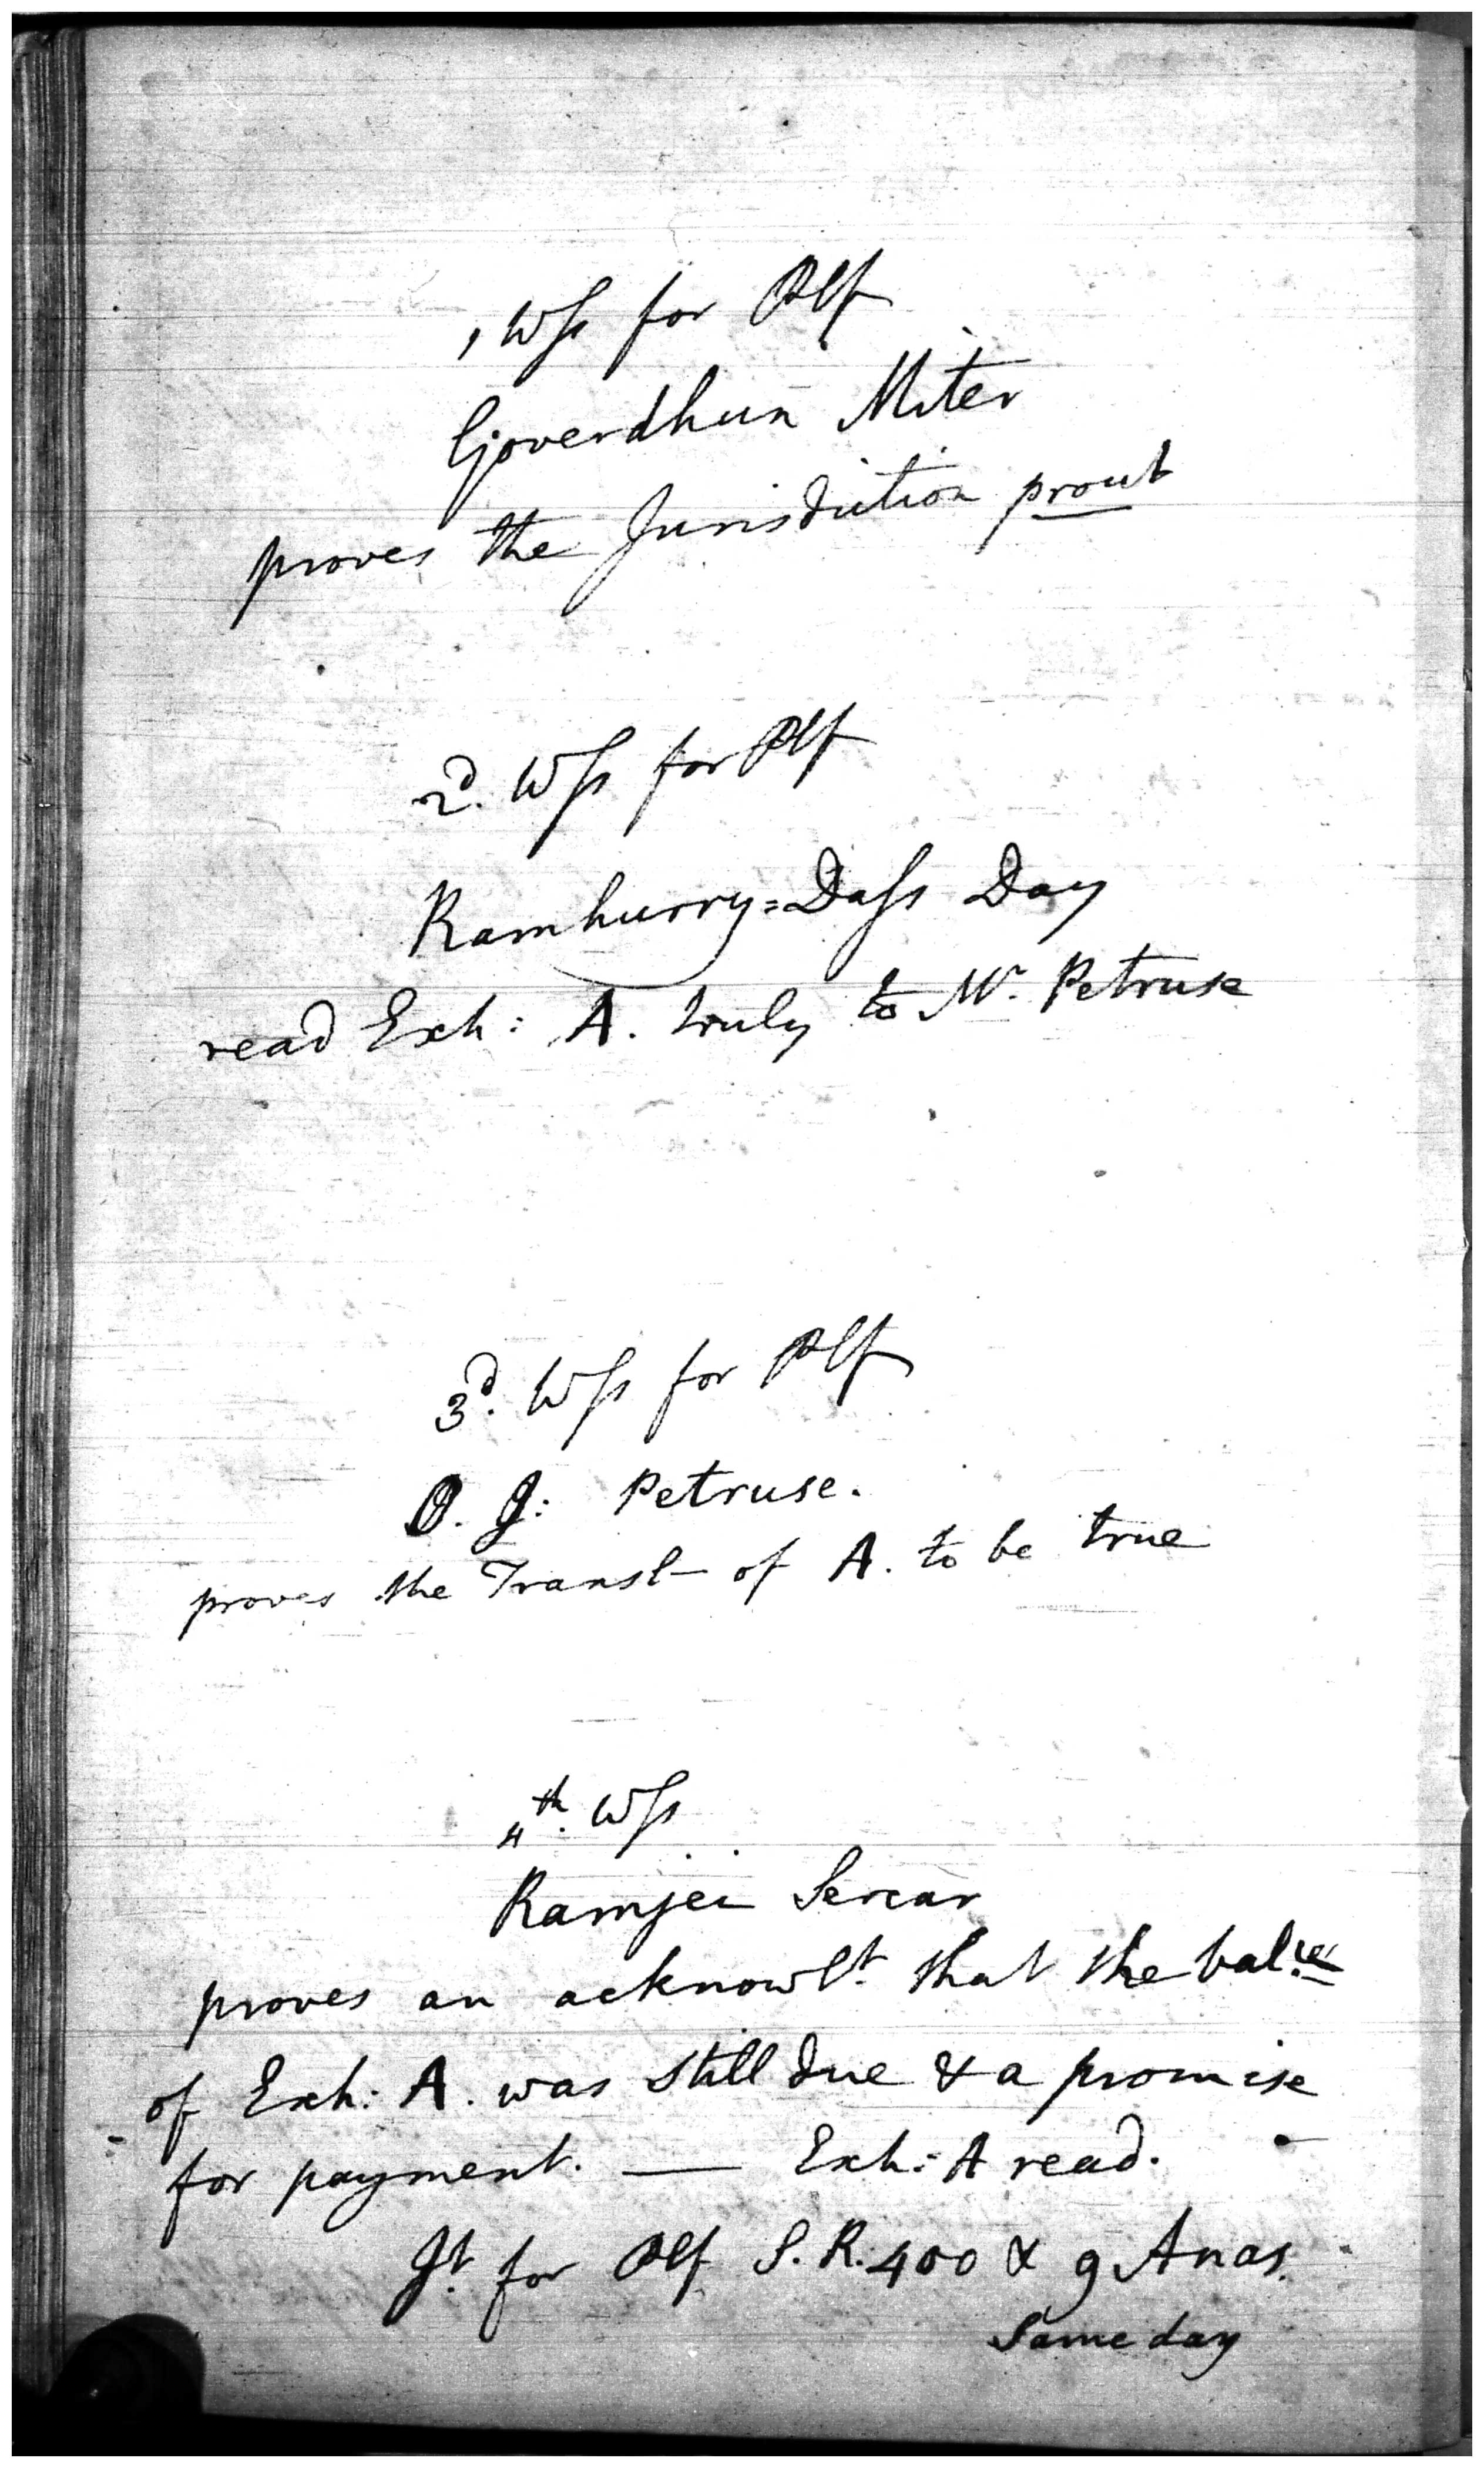 1 Wss for Plf
Goverdhun Miter
proves the Jurisdiction prout
2d. Wss for Plf
Ramhurry=Dass Day
read Exh: A. truly to Mr. Petruse
3d. Wss for Plf
O. J: Petruse.
proves the Transl of A. to be true
4th. Wss
Ramjei Sercar
proves an acknowlt. that the balce
of Exh: A. was still due & a promise
for payment. — Exh: A read.
Jt. for Plf S. R. 400 & 9 Anas.
Same day